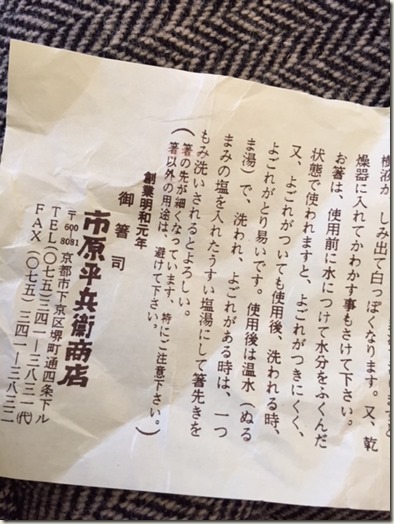 樹液が しみ出て白っぽくなります。又、乾
燥器に入れてかわかす事もさけて下さい。
お箸は、使用前に水につけて水分をふくんだ
状態で使われますと、よごれがつきにくく、
又、よごれがついても使用後、洗われる時、
よごれがとり易いです。使用後は温水（ぬる
ま湯）で、洗われ、よごれがある時は、一つ
まみの塩を入れたうすい塩湯にして箸先きを
もみ洗いされるとよろしい。
（箸の先が細くなっています、特にご注意下さい。
箸以外の用途は、避けて下さい。）
創業明和元年
御箸司
市原平兵衛商店
〒600-8081 京都市下京区堺町通四条下ル
TEL〇七五-三四一-三八三一（代）
FAX（〇七五）三四一-三八三二